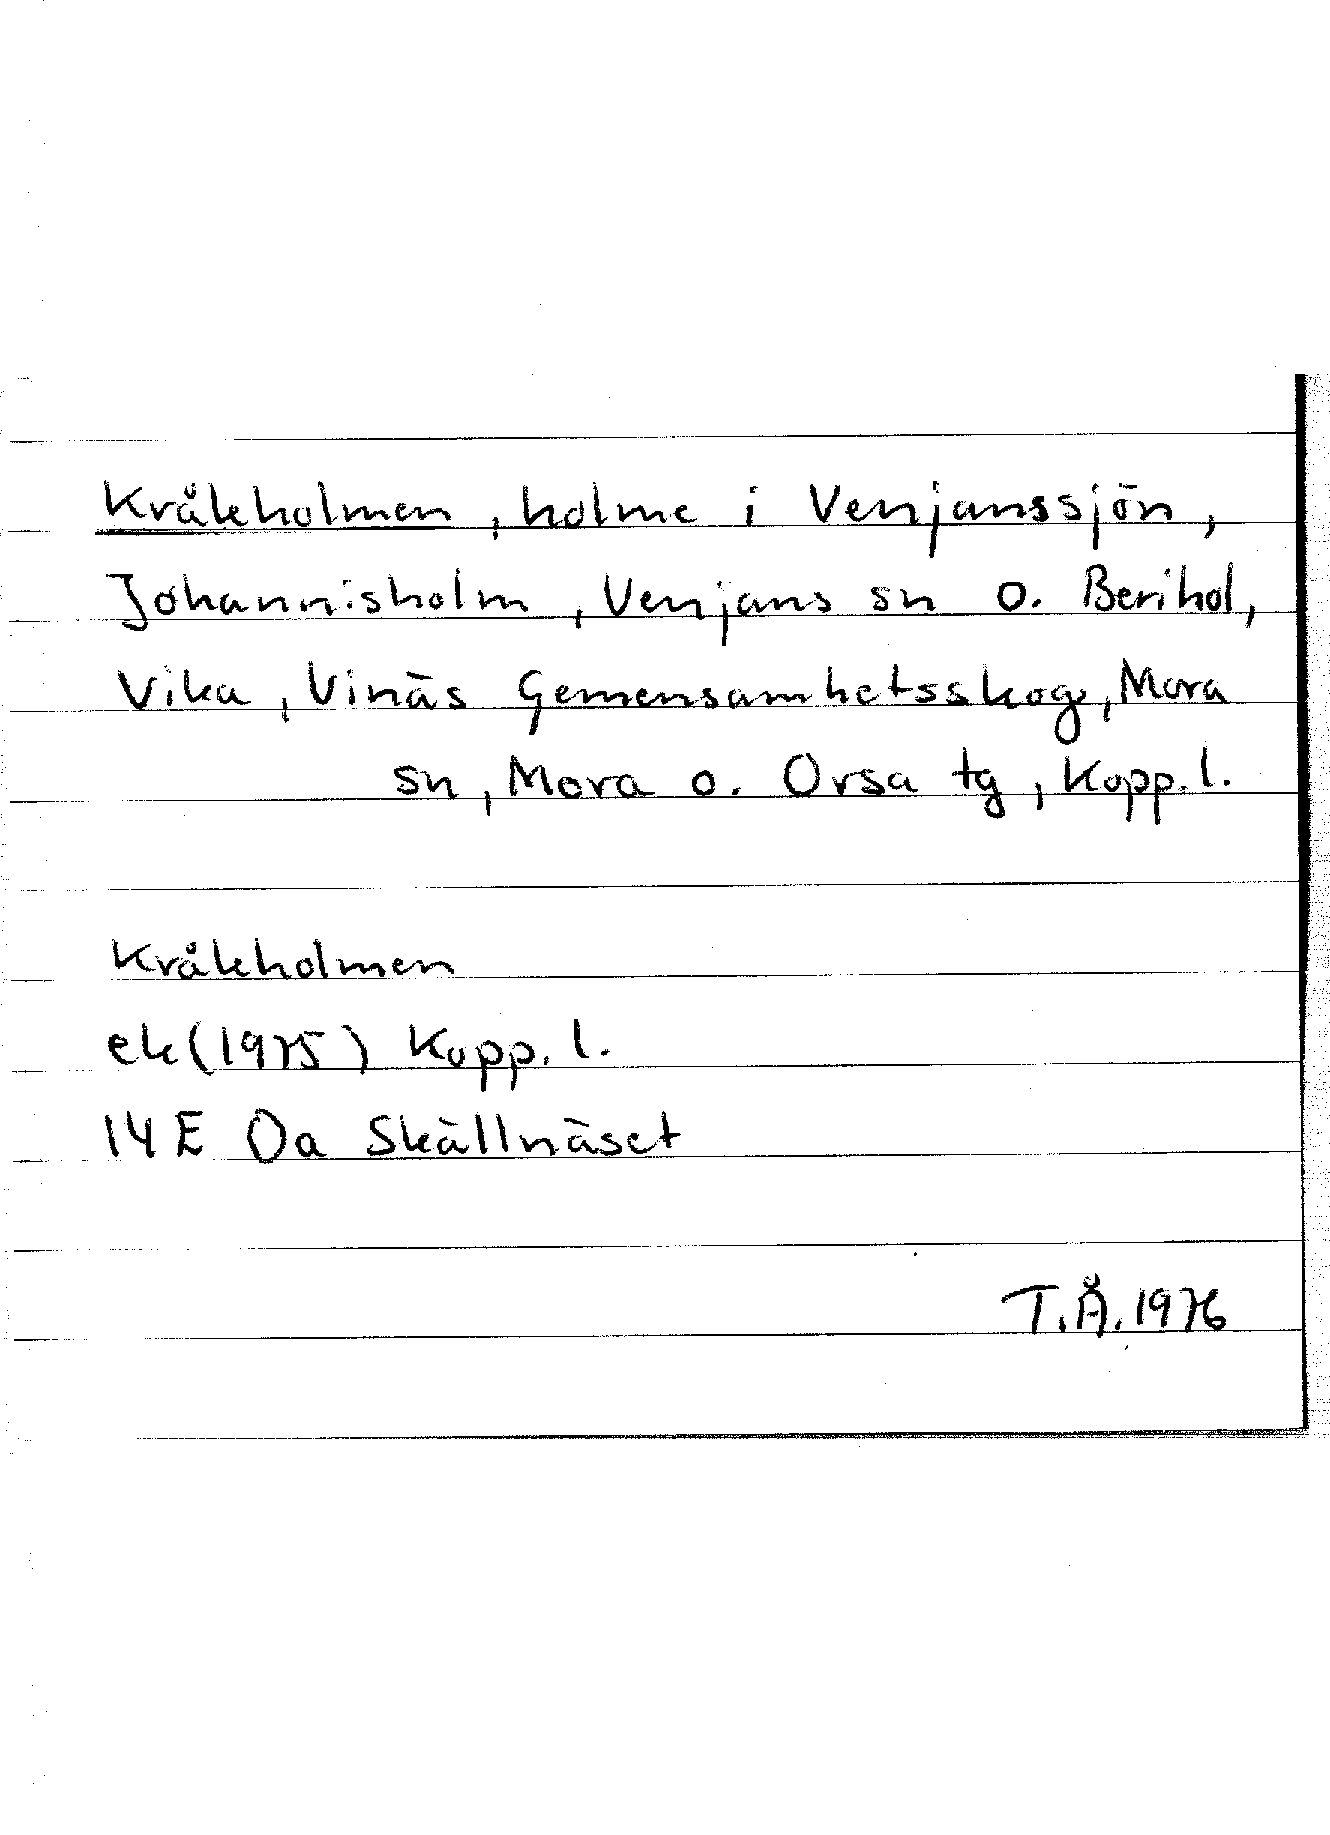 Kråkholmen, holme i Venjanssjön,
Johannisholm, Venjans sn o. Berihol,
Vika, Vinäs Gemensamhetsskog, Mora
sn, Mora o. Orsa tg, Kopp. l.
Kråkholmen
ek (1975) Kopp. l.
14 E 0a Skällnäset
T.Å. 1976